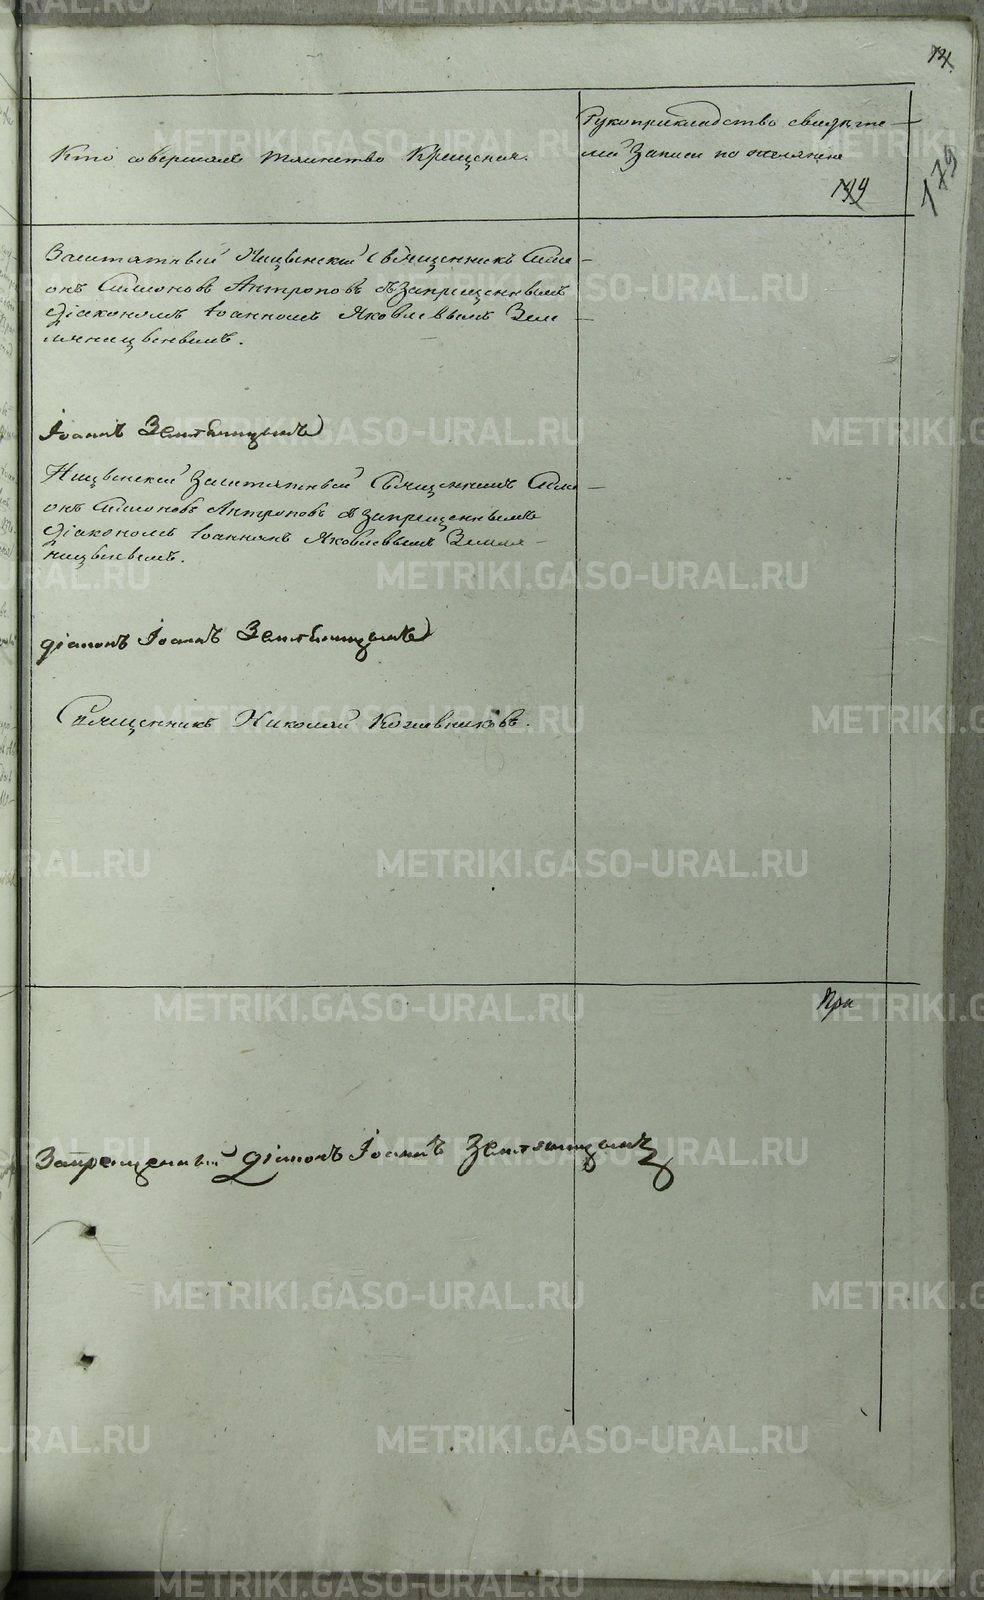 14.
Кто совершалъ таинство Крещенія.
Рукоприкладство свидѣте-
лей записи по желанію
179
Заштатный Ницынскій Священникъ Симе-
онъ Симеоновъ Антроповъ съ запрещеннымъ
діакономъ Іоанномъ Яковлевымъ Земл
яницынымъ.
Іоаннъ Земляницынъ
Ницынскій Заштатный Священникъ Симе-
онъ Симеоновъ Антроповъ съ запрещеннымъ
діакономъ Іоанномъ Яковлевымъ Земля-
ницынымъ.
діаконъ Іоаннъ Земляницынъ
Священникъ Николай Кожевниковъ.
При
Запрещенный діаконъ Іоаннъ Земляницынъ
METRIKI.GASO-URAL.RU